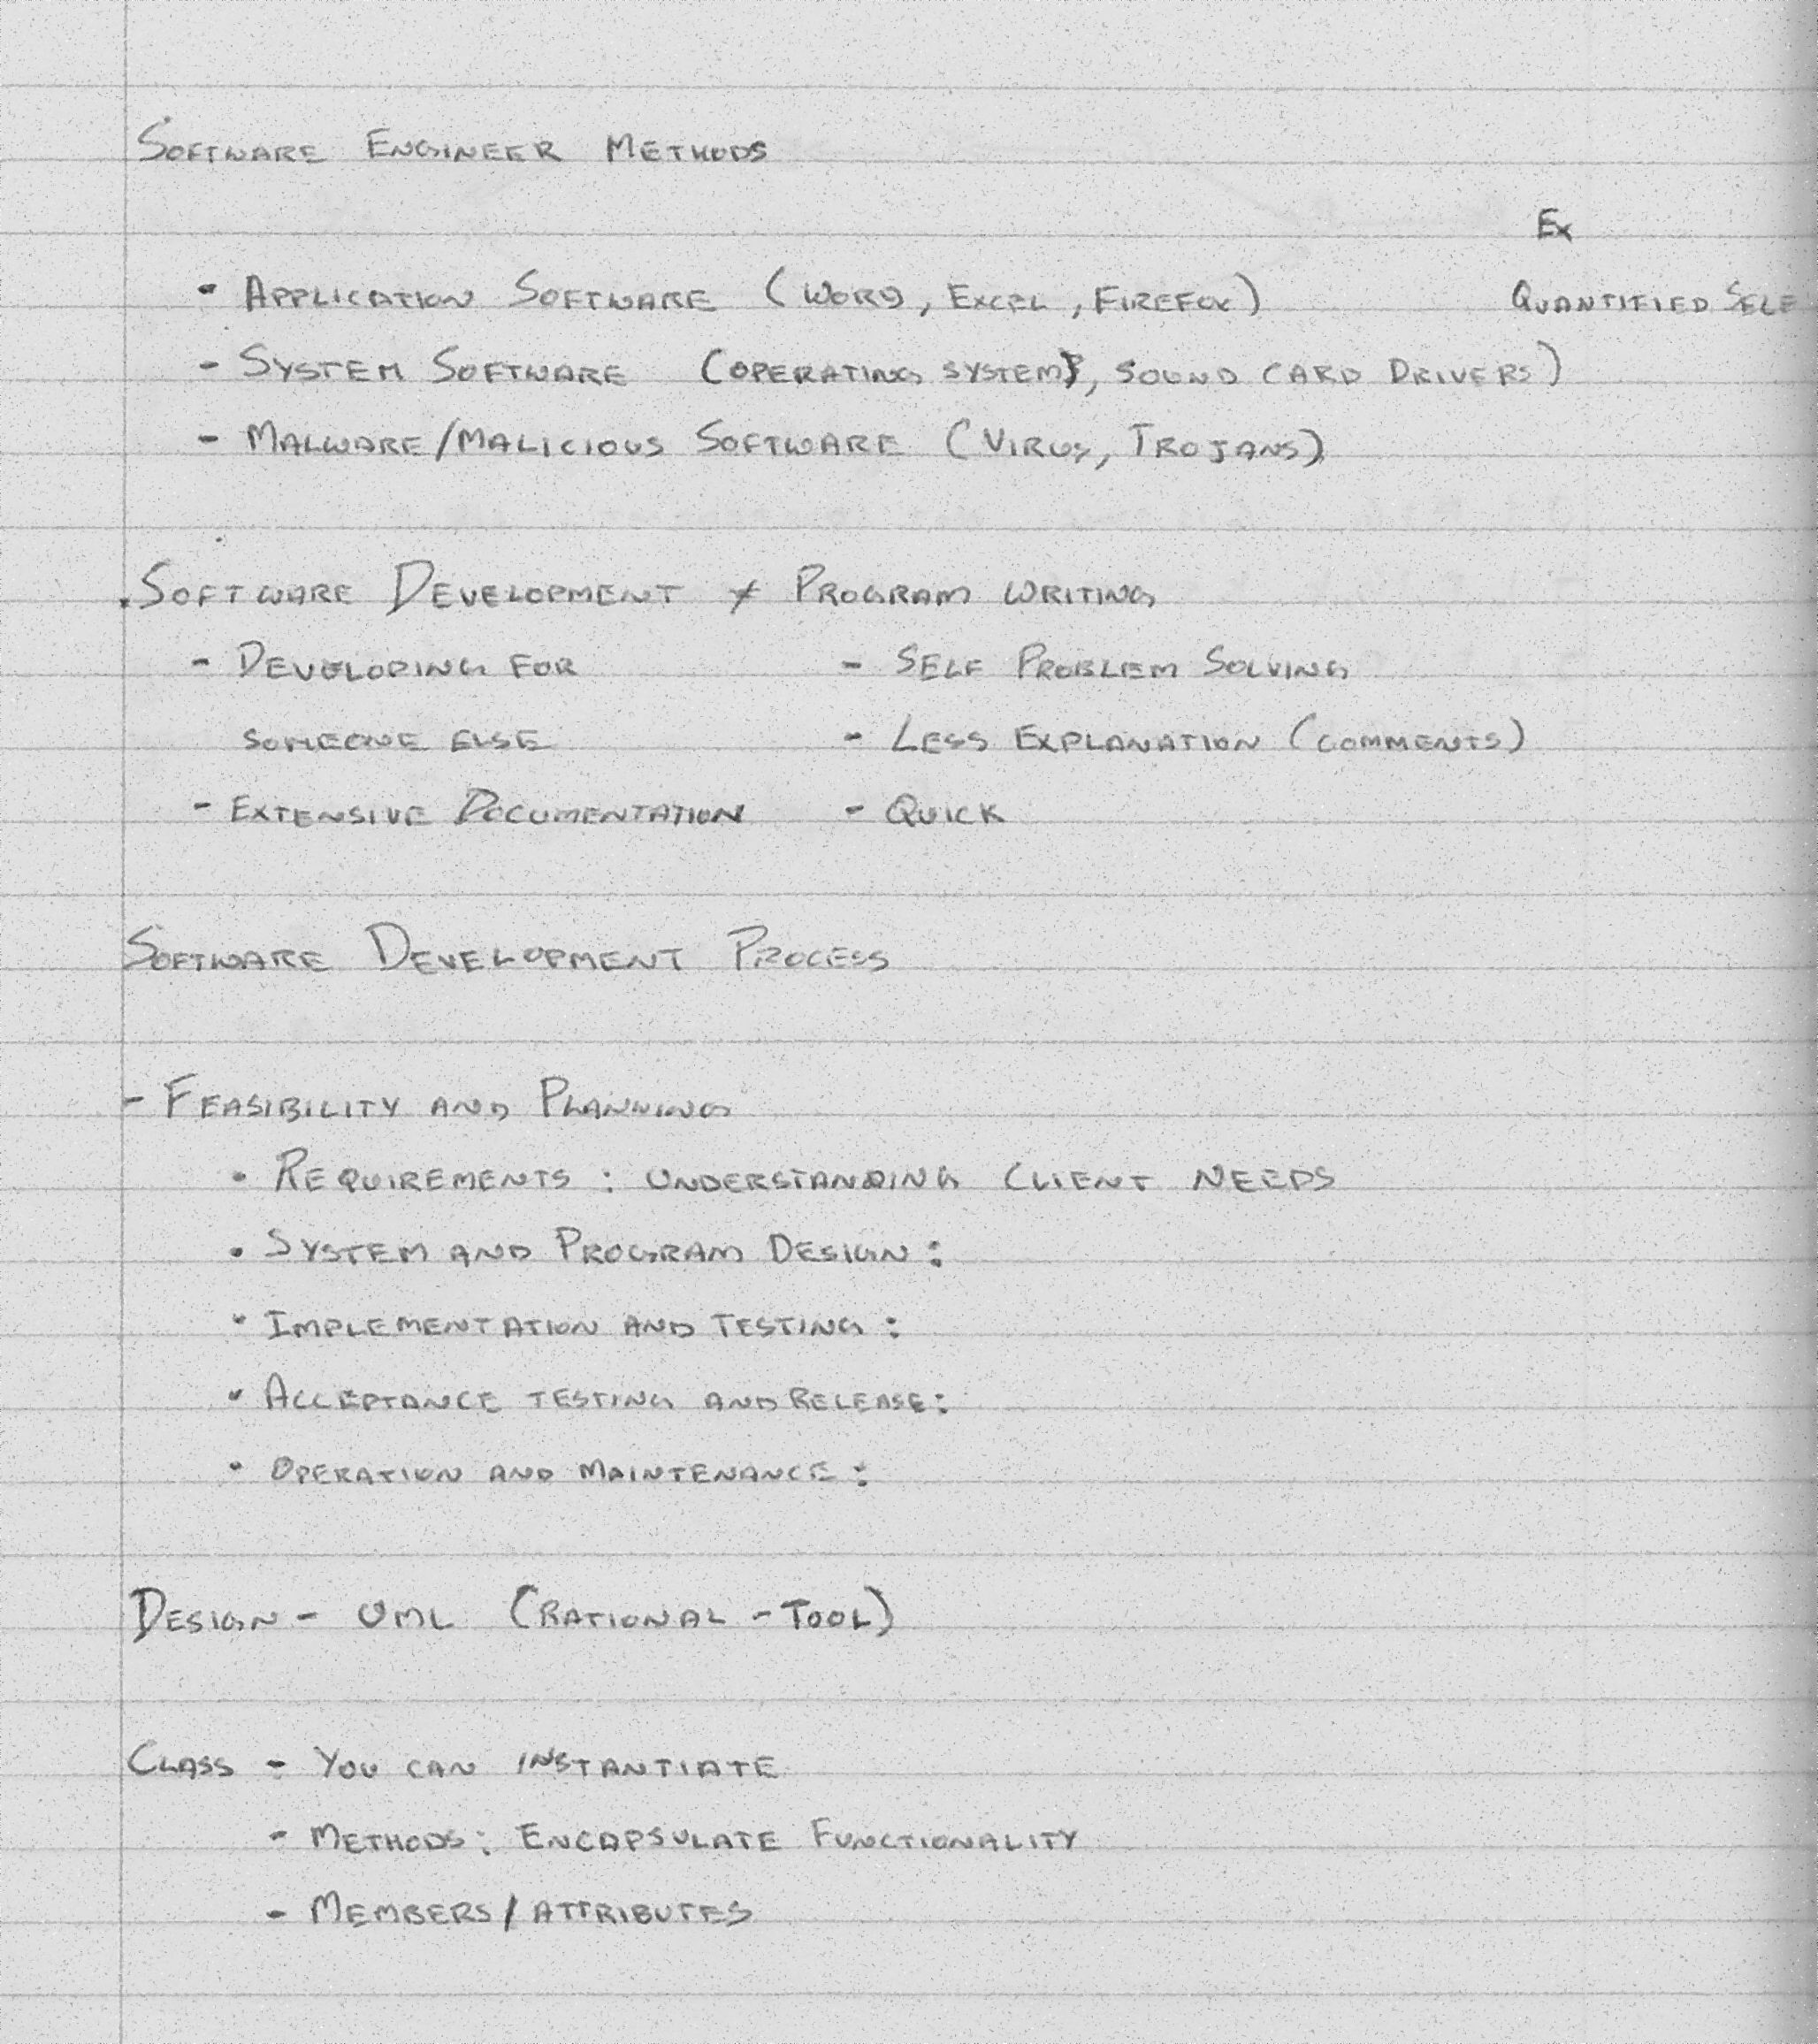 SOFTWARE ENGINEER METHODS
Ex
- APPLICATION SOFTWARE (WORD, EXCEL, FIREFOX) QUANTIFIED SELF
- SYSTEM SOFTWARE (OPERATING SYSTEM, SOUND CARD DRIVERS)
- MALWARE/MALICIOUS SOFTWARE (VIRUS, TROJANS)
. SOFTWARE DEVELOPMENT ≠ PROGRAM WRITING
- DEVELOPING FOR - SELF PROBLEM SOLVING
SOMEONE ELSE - LESS EXPLANATION (COMMENTS)
- EXTENSIVE DOCUMENTATION - QUICK
SOFTWARE DEVELOPMENT PROCESS
- FEASIBILITY AND PLANNING
• REQUIREMENTS : UNDERSTANDING CLIENT NEEDS
• SYSTEM AND PROGRAM DESIGN :
• IMPLEMENTATION AND TESTING :
• ACCEPTANCE TESTING AND RELEASE :
• OPERATION AND MAINTENANCE :
DESIGN - UML (RATIONAL - TOOL)
CLASS - YOU CAN INSTANTIATE
- METHODS : ENCAPSULATE FUNCTIONALITY
- MEMBERS / ATTRIBUTES